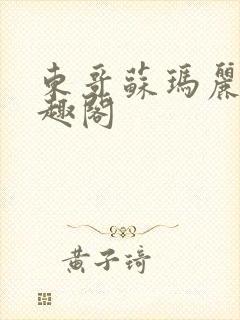 東哥蘇瑪麗
趣閣
黃子琦